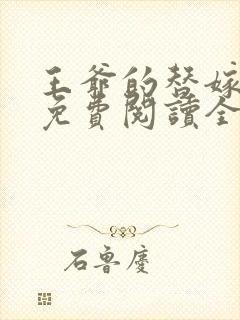 王爺的替嫁
免費閱讀全
石魯慶